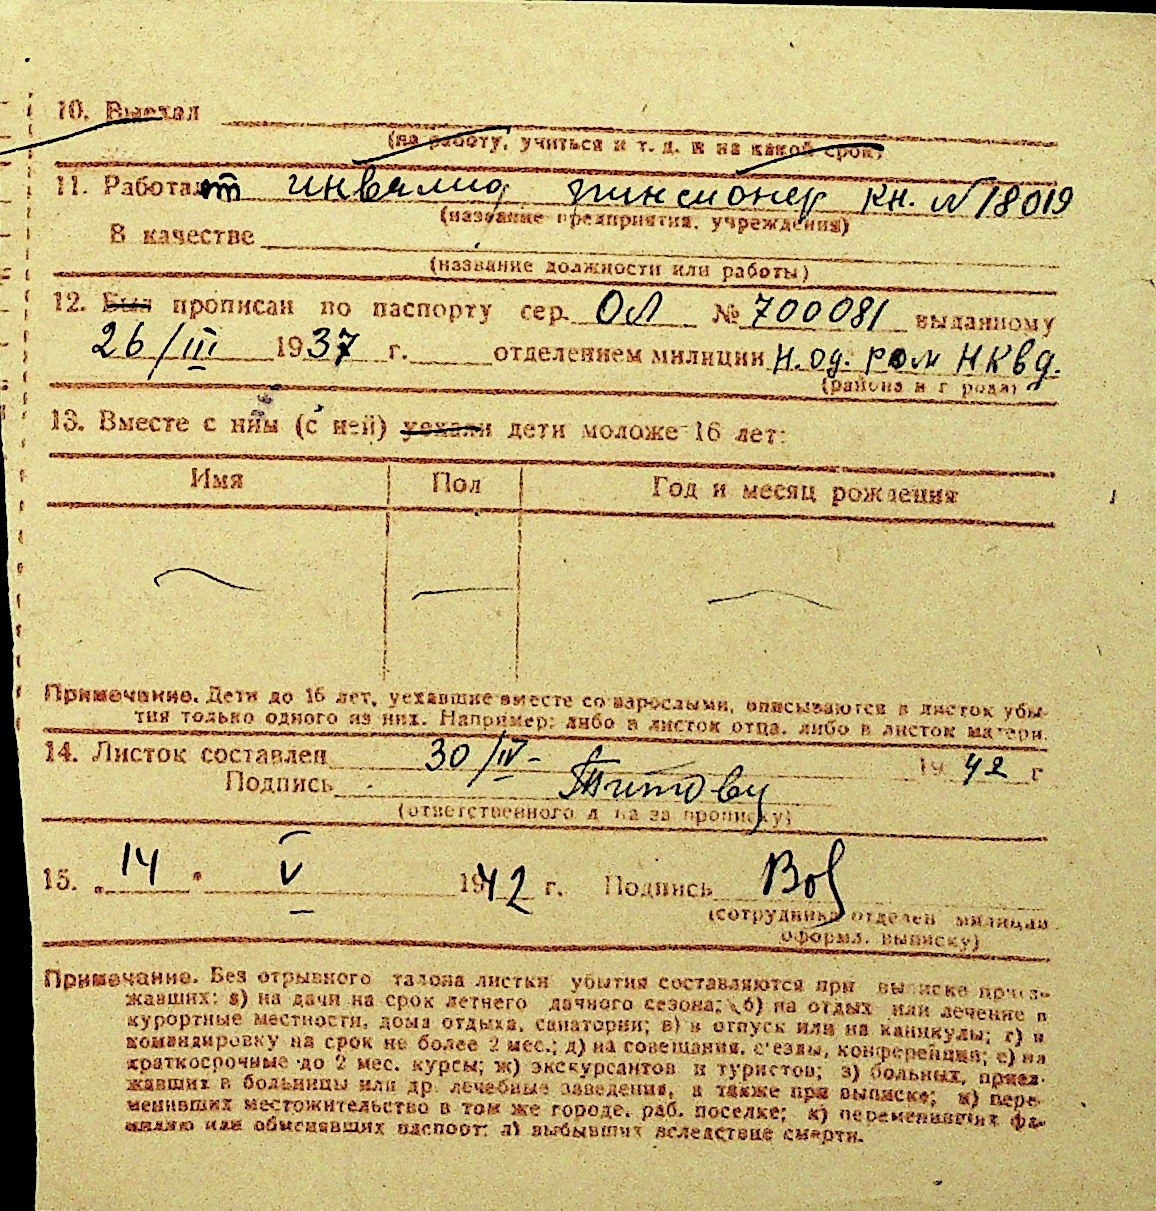 10. Выехал
(на работу, учиться и т. д. и на какой срок)
11. Работает инвалид пинсионер кн. № 18019
(название предприятия, учреждения)
В качестве
(название должности или работы)
12. Был прописан по паспорту сер. ОЛ № 700081 выданному
26/III 1937 г. отделением милиции Н.од. ром НКВД.
(района и города)
13. Вместе с ним (с ней) уехали дети моложе 16 лет:
Имя Пол Год и месяц рождения
Примечание. Дети до 16 лет, уехавшие вместе со взрослыми, вписываются в листок убы-
тия только одного из них. Например: либо в листок отца, либо в листок матери.
14. Листок составлен 30/IV- 1942 г
Подпись
(ответственного л-ца за прописку)
15. „14" V 1942 г. Подпись
(сотрудника отделен. милиции
оформл. выписку)
Примечание. Без отрывного талона листки убытия составляются при выписке приез-
жавших: а) на дачи на срок летнего дачного сезона; б) на отдых или лечение в
курортные местности, дома отдыха, санатории; в) в отпуск или на каникулы; г) в
командировку на срок не более 2 мес.; д) на совещания, с'езды, конференции; е) на
краткосрочные до 2 мес. курсы; ж) экскурсантов и туристов; з) больных, приез-
жавших в больницы или др. лечебные заведения, а также при выписке; и) пере-
менивших местожительство в том же городе, раб. поселке; к) переменивших фа-
милию или обменявших паспорт; л) выбывших вследствие смерти.